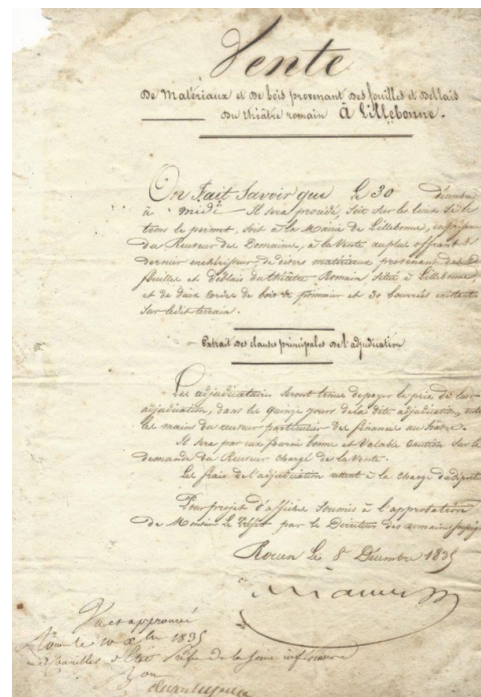 Vente
De Matériaux et de bois provenant des fouilles et Déblais
Du théâtre romain À Lillebonne.
On Fait Savoir que le 30 décembre
à midi Il sera procédé, soit sur les lieux si le
tems le permet, soit à la Mairie de Lillebonne,
du Receveur des Domaines, à la Vente au plus offrant &
dernier enchérisseur de divers matériaux provenant des
fouilles et déblais du théâtre Romain, situé à Lillebonne,
et de deux cordes de bois de pommier et 30 bourrées
sur ledit terrain.
Extrait des clauses principales de l'adjudication
Les adjudicataires seront tenus de payer le prix de
adjudication, dans les quinze jours de la dite adjudication,
les mains du receveur particulier des finances au havre.
Il sera par eux fourni bonne et Valable Caution sur la
demande du Receveur chargé de la Vente.
Les frais de l'adjudication à la charge
Pour projet d'affiche Soumis à l'approbation
de Monsieur le Préfet par le Directeur des domaines
Rouen le 8 Décembre 1835
Vu et approuvé
le 10 1835
Préfet de la Seine inférieure